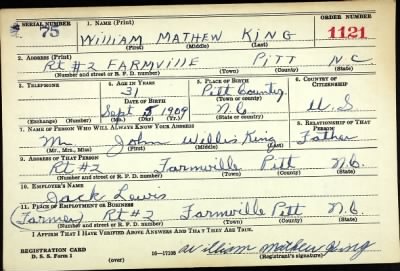 SERIAL NUMBER 1. NAME (Print) ORDER NUMBER
75 William Mathew King 1121
(First) (Middle) (Last)
2. ADDRESS (Print)
Rt #2 FARMVILLE PITT N C
(Number and street or R. F. D. number) (Town) (County) (State)
3. TELEPHONE 4. AGE IN YEARS 5. PLACE OF BIRTH 6. COUNTRY OF CITIZENSHIP
31 Pitt County
DATE OF BIRTH (Town or county)
Sept 5 1909 N.C. U.S
(Exchange) (Number) (Mo.) (Day) (Yr.) (State or country)
7. NAME OF PERSON WHO WILL ALWAYS KNOW YOUR ADDRESS 8. RELATIONSHIP OF THAT PERSON
Mr John Willis King Father
(Mr., Mrs., Miss) (First) (Middle) (Last)
9. ADDRESS OF THAT PERSON
Rt #2 Farmville Pitt N.C.
(Number and street or R. F. D. number) (Town) (County) (State)
10. EMPLOYER'S NAME
Jack Lewis
11. PLACE OF EMPLOYMENT OR BUSINESS
(Farmer) Rt #2 Farmville Pitt N.C.
(Number and street or R. F. D. number) (Town) (County) (State)
I AFFIRM THAT I HAVE VERIFIED ABOVE ANSWERS AND THAT THEY ARE TRUE.
REGISTRATION CARD
D. S. S. Form 1 (over) 16—17105 William Mathew King
(Registrant's signature)